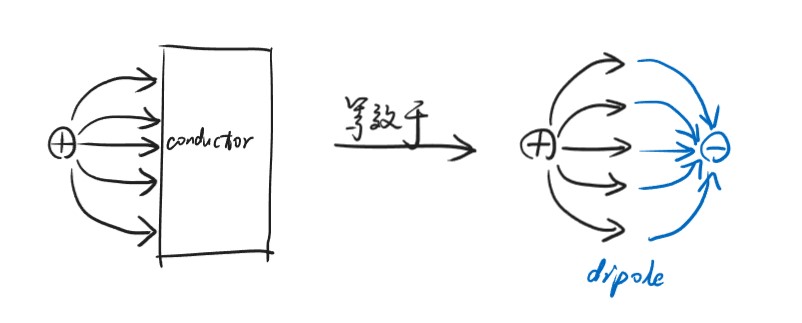 +
conductor
等效于
+
-
dripole